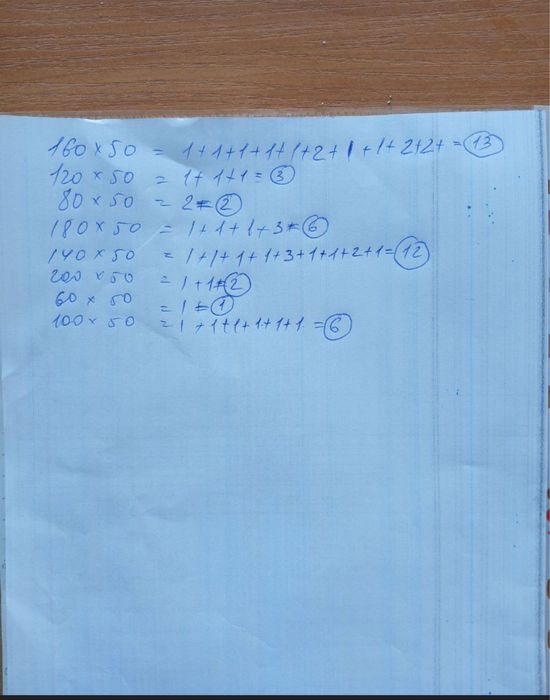 160 x 50 = 1+1+1+1+1+2+1+1+2+2+ = 13
120 x 50 = 1+1+1 = 3
80 x 50 = 2 = 2
180 x 50 = 1+1+1+3 = 6
140 x 50 = 1+1+1+1+3+1+1+2+1 = 12
200 x 50 = 1+1 = 2
60 x 50 = 1 = 1
100 x 50 = 1+1+1+1+1+1 = 6